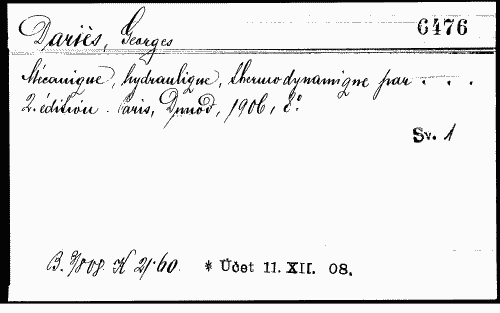 Dariès, Georges 6476
Mécanique, hydraulique, thermodynamique par . . .
2. édition. Paris, Dunod, 1906, 8°
Sv. 1
B. 9/808. K 21·60. * Účet 11. XII. 08.